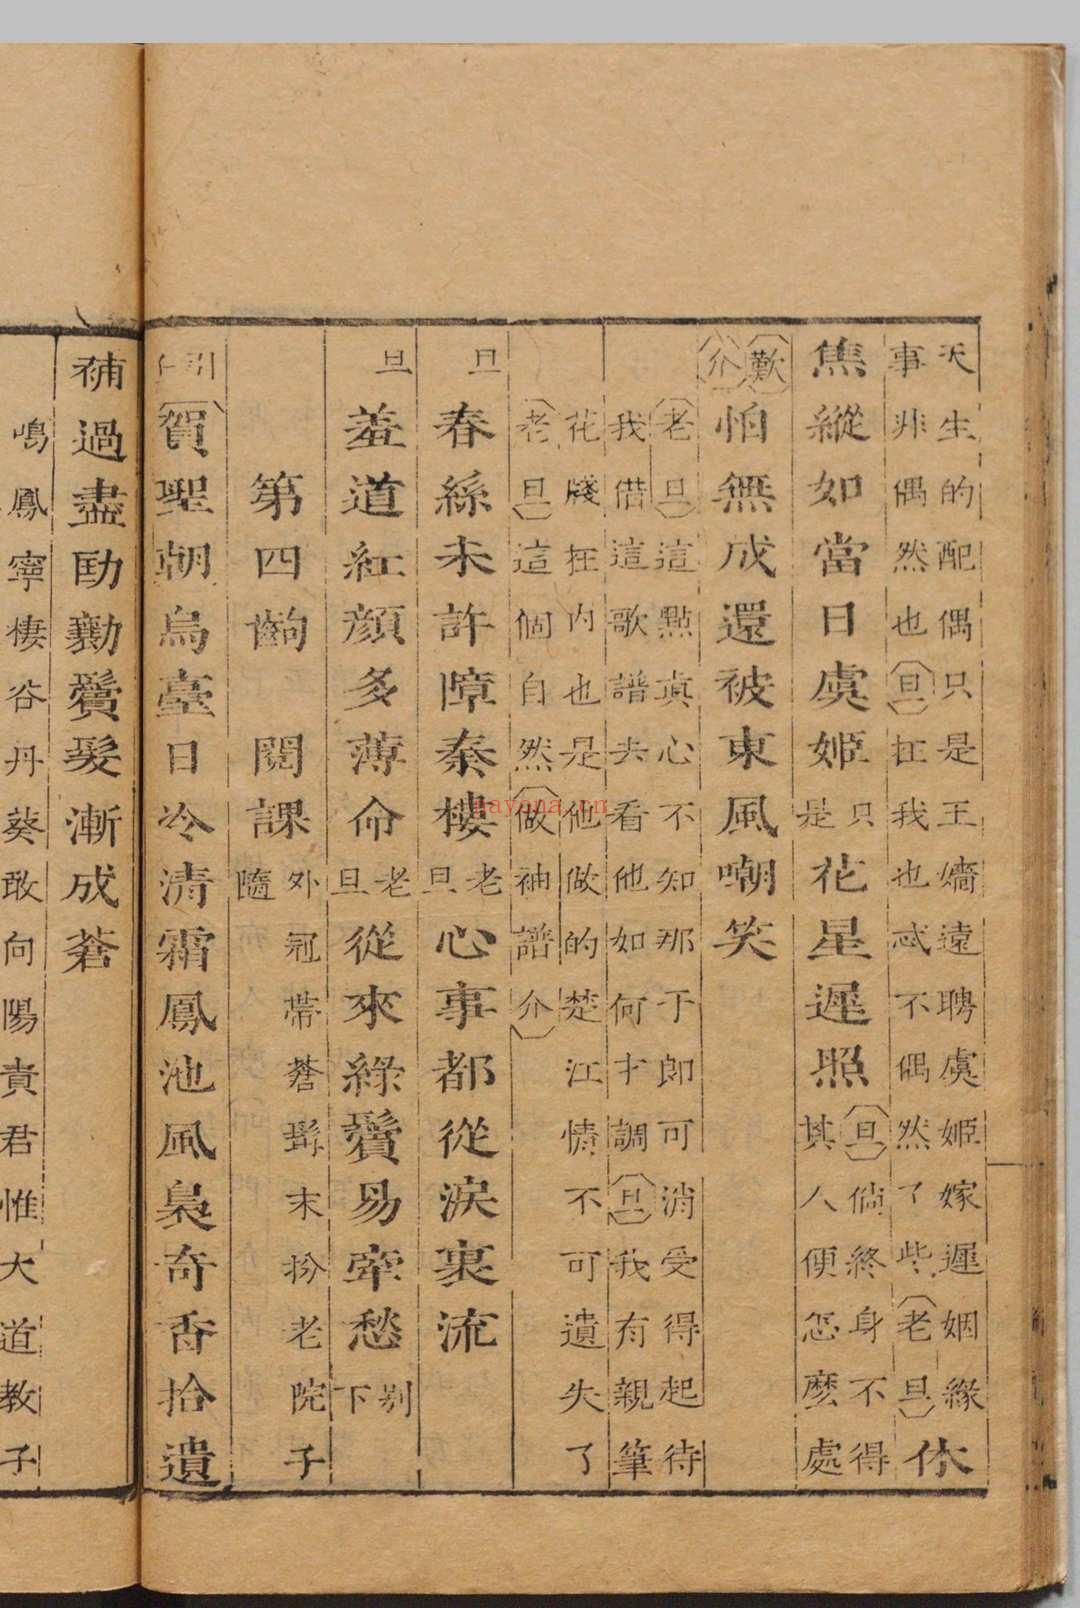 天生的配偶只是王嬙遠聘虞姬嫁遲姻緣
事非偶然也旦扛我也忒不偶然了些老旦休
焦縱如當日虞姬只是花星遲照旦倘終身不得
其人便怎麼處
歎介怕無成還被東風嘲笑
老旦這點真心不知那于郎可消受得起待
我借這歌譜去看他如何才調旦我有親筆
花牋在內也是他做的楚江情不可遺失了
老旦這個自然做袖譜介
旦春絲未許障秦樓老旦心事都從淚裏流
旦羞道紅顏多薄命老旦從來綠鬢易牽愁別下
第四齣 閱課外冠帶蒼髯末扮老院子
隨
引賀聖朝烏臺日冷清霜鳳池風梟奇香拾遺
補過盡劻勷鬢髮漸成蒼
鳴鳳寧棲谷丹葵敢向陽責君惟大道教子
nayona.cn